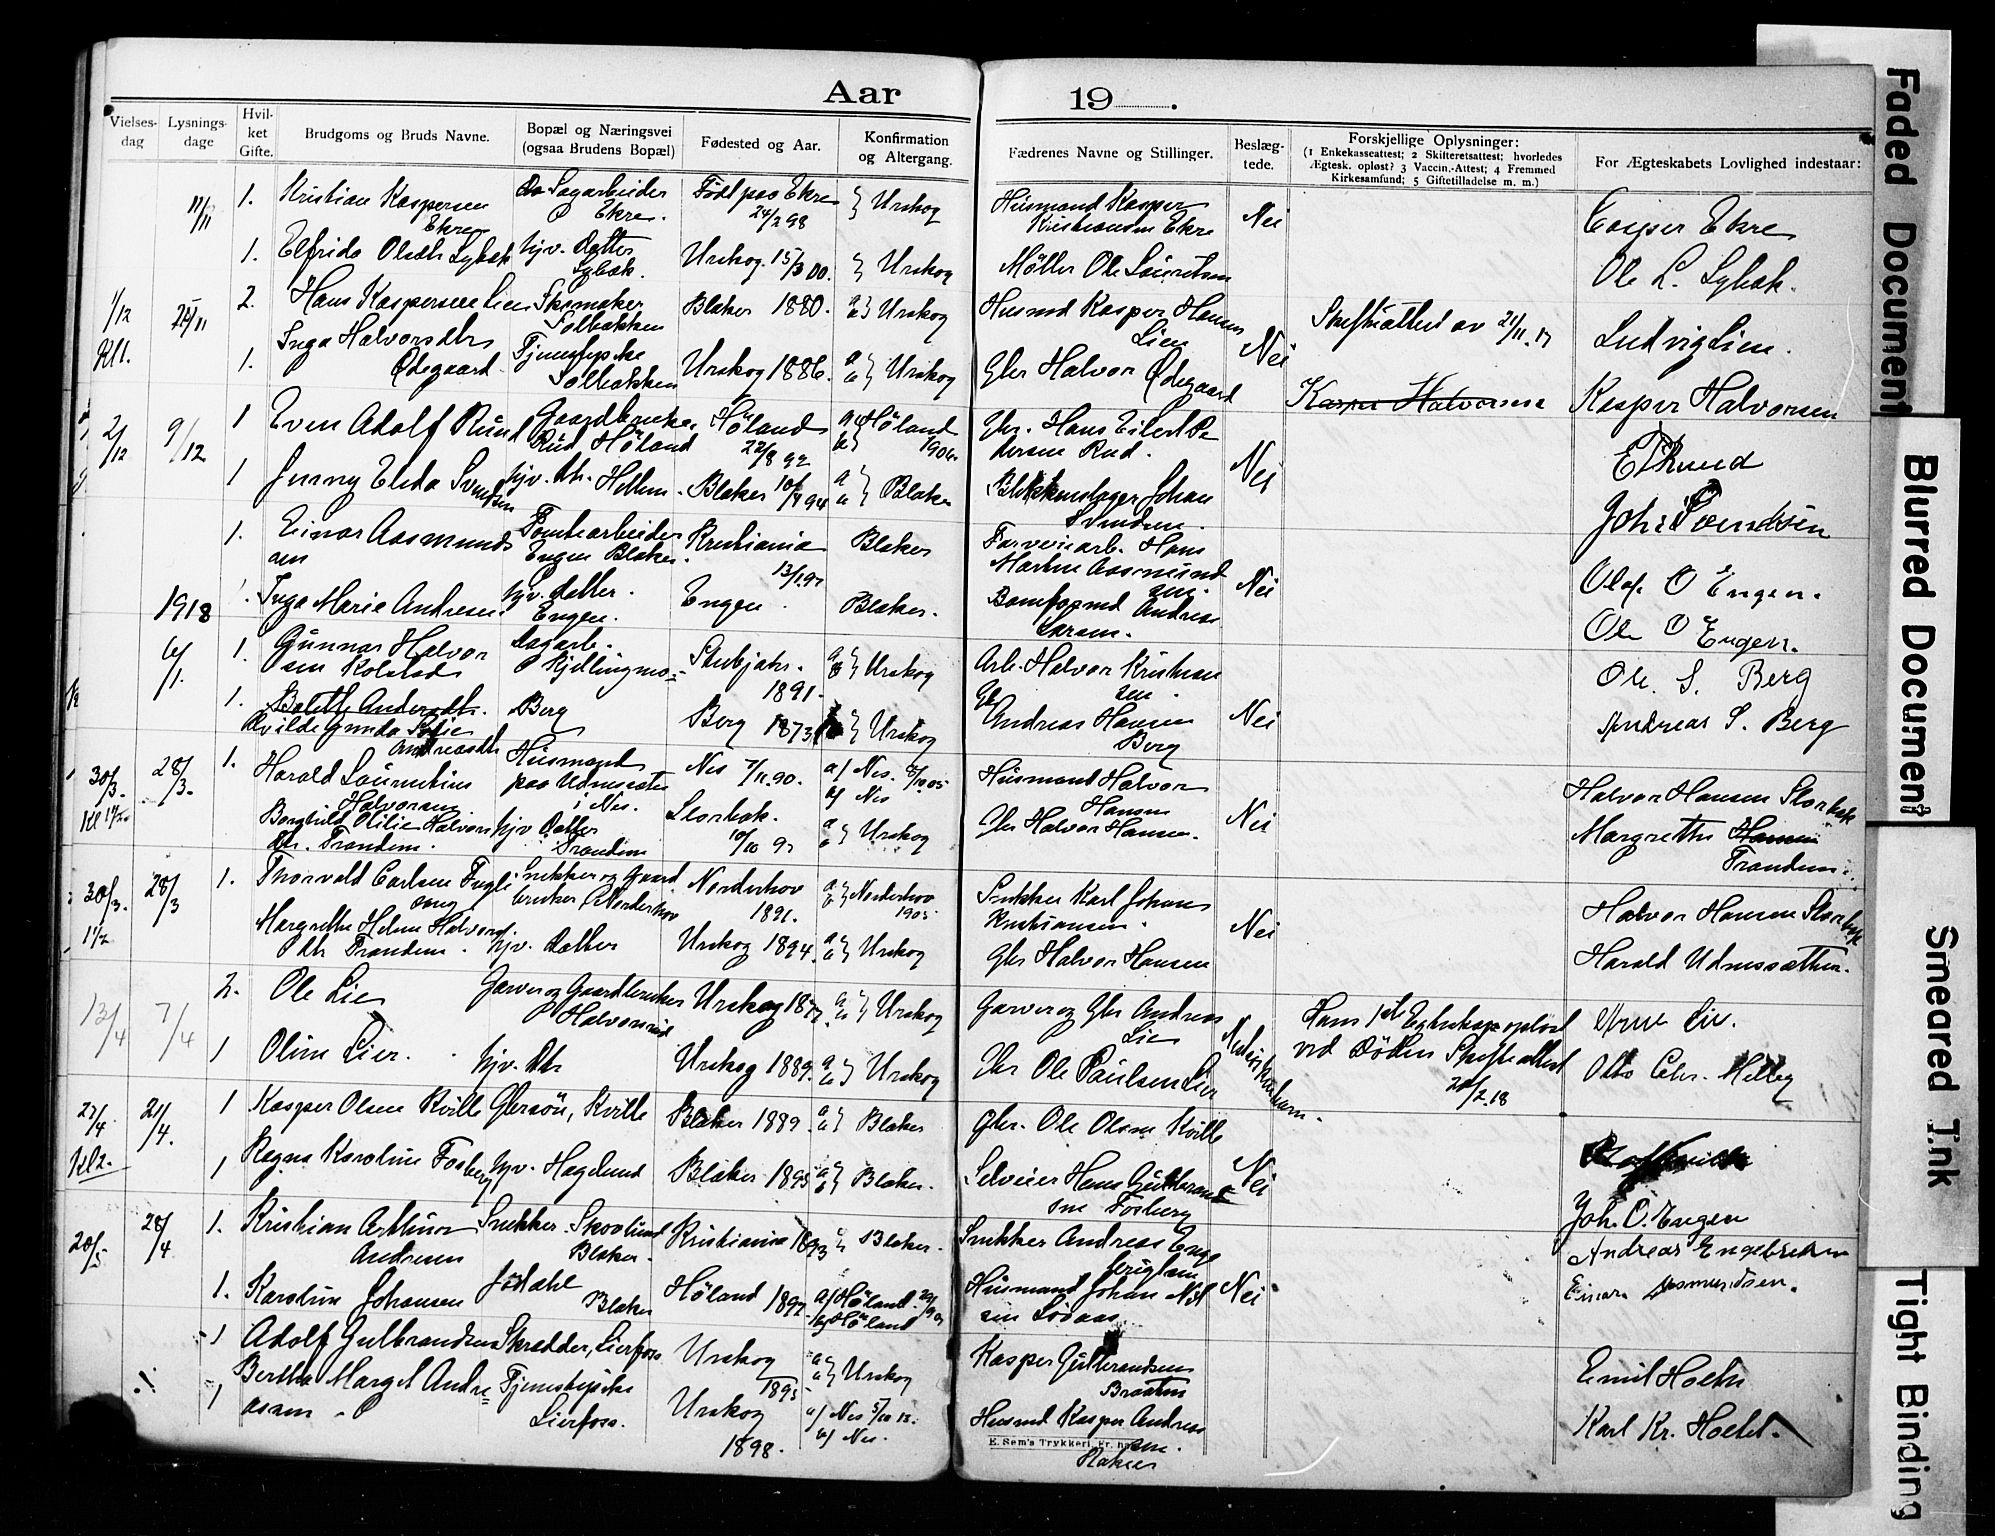 Aar 19
Vielses-dag
Lysnings-dage
Hvil-ket Gifte.
Brudgoms og Bruds Navne.
Bopæl og Næringsvei (ogsaa Brudens Bopæl)
Fødested og Aar.
Konfirmation og Altergang.
Fædrenes Navne og Stillinger.
Beslæg-tede.
Forskjellige Oplysninger:
(1 Enkekasseattest; 2 Skifteretsattest; hvorledes Ægtesk. opløst? 3 Vaccin.-Attest; 4 Fremmed Kirkesamfund; 5 Giftetilladelse m. m.)
For Ægteskabets Lovlighed indestaar:
1. Kristian Kaspersen Ekre Sagarbeider Ekre. Født paa Ekre 24/2 98 Urskog Husmand Kasper Kristiansen Ekre Nei Casper Ekre
1. Elfrida Olsdtr Lybæk hjv. datter Lybæk. Urskog 15/3 00. Urskog Møller Ole Lauritsen Ole L. Lybæk.
1/12 2. Hans Kaspersen Lien Skomaker Solbakken Blaker 1880. Urskog Husmd Kasper Hansen Lien Skifteattest av 21/11.17 Ludvig Lien.
Kl 1. 1. Inga Halvorsdtr Ødegaard Tjenestepike Solbakken Urskog 1886. Urskog Gbr Halvor Ødegaard Nei Kasper Halvorsen Kasper Halvorsen
2/12 9/12 1 Even Adolf Rund Gaardbruker Rud Høland Høland 22/8 92 Høland 1906 Gbr. Hans Eilert Pedersen Rud. Nei
1 Jenny Elida Svendsen hjv. dtr. Hellen. Blaker 94 Blaker Blikkenslager Johan Svendsen. Joh. Svendsen
1. Einar Aasmundsen Tomtearbeider Engen Blaker. Kristiania 13/1.97 Blaker Hans Martin Aasmundsen. Nei Olaf O Engen.
1918 1. Inga Marie Andresen hjv. datter. Engen. Engen. Blaker. Andreas Larsen. Ole O Engen.
6/1. 1. Gunnar Halvorsen Kolstad Sagarb. Kjellingmo. 1891. Urskog Arb. Halvor Kristiansen. Ole. S. Berg
1. Bolette Andersdtr. Gunda Sofie Andreasdtr Berg Berg 1873 Urskog Gbr Andreas Hansen Berg Nei Andreas S. Berg
30/3. 28/3. 1. Harald Laurentius Halvorsen Husmand paa Udnessæter i Nes. Nes 7/11.90. a) Nes. b) Nes Husmand Halvor Hansen Halvor Hansen Storbæk
Borghild Otilie Halvorsdtr. Trandem. hjv Datter Trandem Storbæk. 10/10 97 Urskog Gbr Halvor Hansen. Nei Margrethe Hansen Trandem.
30/3. 28/3 1. Thorvald Carlsen Snekker og Gaardbruker Norderhov Norderhov 1891. Norderhov 1905. Snekker Karl Johan Kristiansen. Halvor Hansen Storbæk
1 1/2 Margrethe Helene Halvorsdtr Trandem. hjv. Datter Urskog 1894. Urskog Gbr Halvor Hansen Nei Harald Udnessæther.
13/4 7/4 2. Ole Lie Garver og Gaardbruker Halvorsrud Urskog 1877. Urskog Garver og Gbr Andreas Lie Hans 1st Egteskap opløst ved Døden Skifteattest 20/2.18 Arne Lie.
1 Oline Lier. hjv. Dtr Urskog 1889. Urskog Gbr Ole Paulsen Lier Otto Chr. Melby
27/4 21/4. 1 Kasper Olsen Kville Gbrsøn, Kville Blaker 1889. Blaker Gbr. Ole Olsen Kville
Kl 2. 1 Ragna Karoline Fosberg hjv. Hagelund Blaker 1895 Blaker. Selveier Hans Gulbrandsen Fosberg Nei Joh. O. Engen
20/5 28/4 1. Kristian Arthur Andresen Snekker. Skovlund Blaker. Kristiania 1893 Blaker. Snekker Andreas Andreas Engebretsen
1. Karoline Johansen Blaker Høland 1897. a) Høland. b) Høland Husmand Johan Nilsen Nei Einar Aasmundsen.
1 Adolf Gulbrandsen Skrædder, Lierfoss Urskog 1895 Urskog Kasper Gulbrandsen Braaten Emil Holth
1 Bertha Marget Andreassen Tjenestepike Lierfoss. Urskog 1898. a) Nes b) Nes. Husmd Kasper Andreassen. Karl Kr. Holth.
E. Sem's Trykkeri, Fr.
Faded Document
Blurred Document
Smeared Ink
Tight Binding